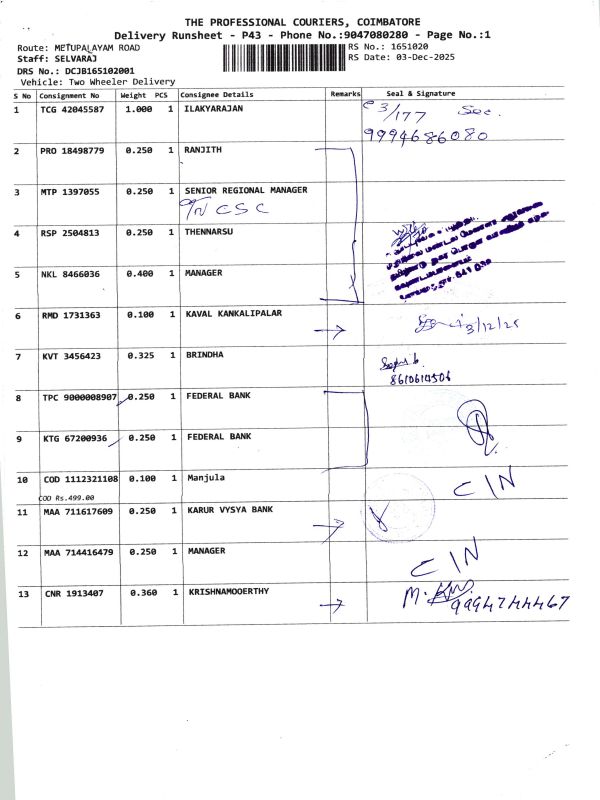 THE PROFESSIONAL COURIERS, COIMBATORE
Delivery Runsheet - P43 - Phone No.:9047080280 - Page No.:1
Route: METUPALAYAM ROAD RS No.: 1651020
Staff: SELVARAJ RS Date: 03-Dec-2025
DRS No.: DCJB165102001
Vehicle: Two Wheeler Delivery
S No Consignment No Weight PCS Consignee Details Remarks Seal & Signature
1 TCG 42045587 1.000 1 ILAKYARAJAN 3/177 Sec.
9994686080
2 PRO 18498779 0.250 1 RANJITH
3 MTP 1397055 0.250 1 SENIOR REGIONAL MANAGER
CSC
4 RSP 2504813 0.250 1 THENNARSU
5 NKL 8466036 0.400 1 MANAGER
6 RMD 1731363 0.100 1 KAVAL KANKALIPALAR 3/12/25
7 KVT 3456423 0.325 1 BRINDHA
8610614506
8 TPC 9000008907 0.250 1 FEDERAL BANK
9 KTG 67200936 0.250 1 FEDERAL BANK
10 COD 1112321108 0.100 1 Manjula C IN
COD Rs.499.00
11 MAA 711617609 0.250 1 KARUR VYSYA BANK
12 MAA 714416479 0.250 1 MANAGER C IN
13 CNR 1913407 0.360 1 KRISHNAMOOERTHY M.
9994744467